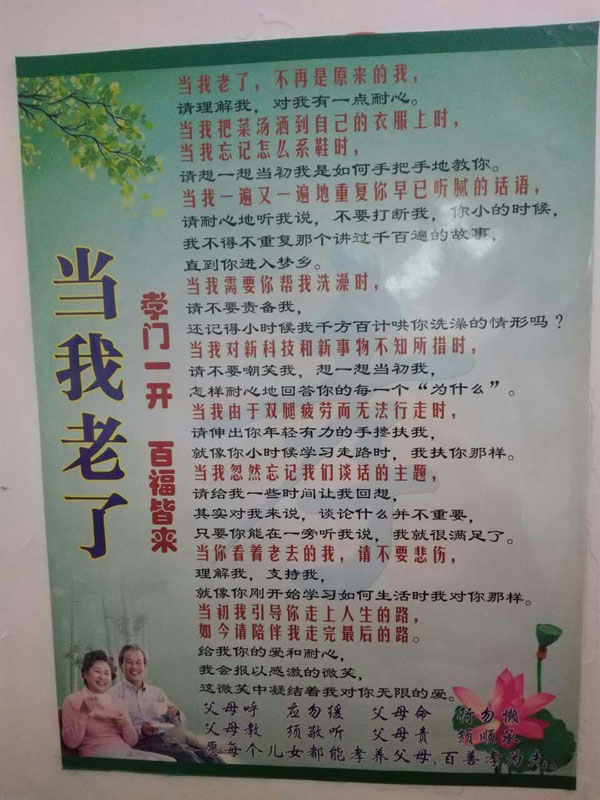 当我老了
孝门一开 百福皆来
当我老了，不再是原来的我，
请理解我，对我有一点耐心。
当我把菜汤洒到自己的衣服上时，
当我忘记怎么系鞋时，
请想一想当初我是如何手把手地教你。
当我一遍又一遍地重复你早已听腻的话语，
请耐心地听我说，不要打断我，你小的时候，
我不得不重复那个讲过千百遍的故事，
直到你进入梦乡。
当我需要你帮我洗澡时，
请不要责备我，
还记得小时候我千方百计哄你洗澡的情形吗？
当我对新科技和新事物不知所措时，
请不要嘲笑我，想一想当初我，
怎样耐心地回答你的每一个“为什么”。
当我由于双腿疲劳而无法行走时，
请伸出你年轻有力的手搀扶我，
就像你小时候学习走路时，我扶你那样。
当我忽然忘记我们谈话的主题，
请给我一些时间让我回想，
其实对我来说，谈论什么并不重要，
只要你能在一旁听我说，我就很满足了。
当你看着老去的我，请不要悲伤，
理解我，支持我，
就像你刚开始学习如何生活时我对你那样。
当初我引导你走上人生的路，
如今请陪伴我走完最后的路。
给我你的爱和耐心，
我会报以感激的微笑，
这微笑中凝结着我对你无限的爱。
父母呼 应勿缓 父母命 行勿懒
父母教 须敬听 父母责 须顺承
愿每个儿女都能孝养父母,百善孝为先。